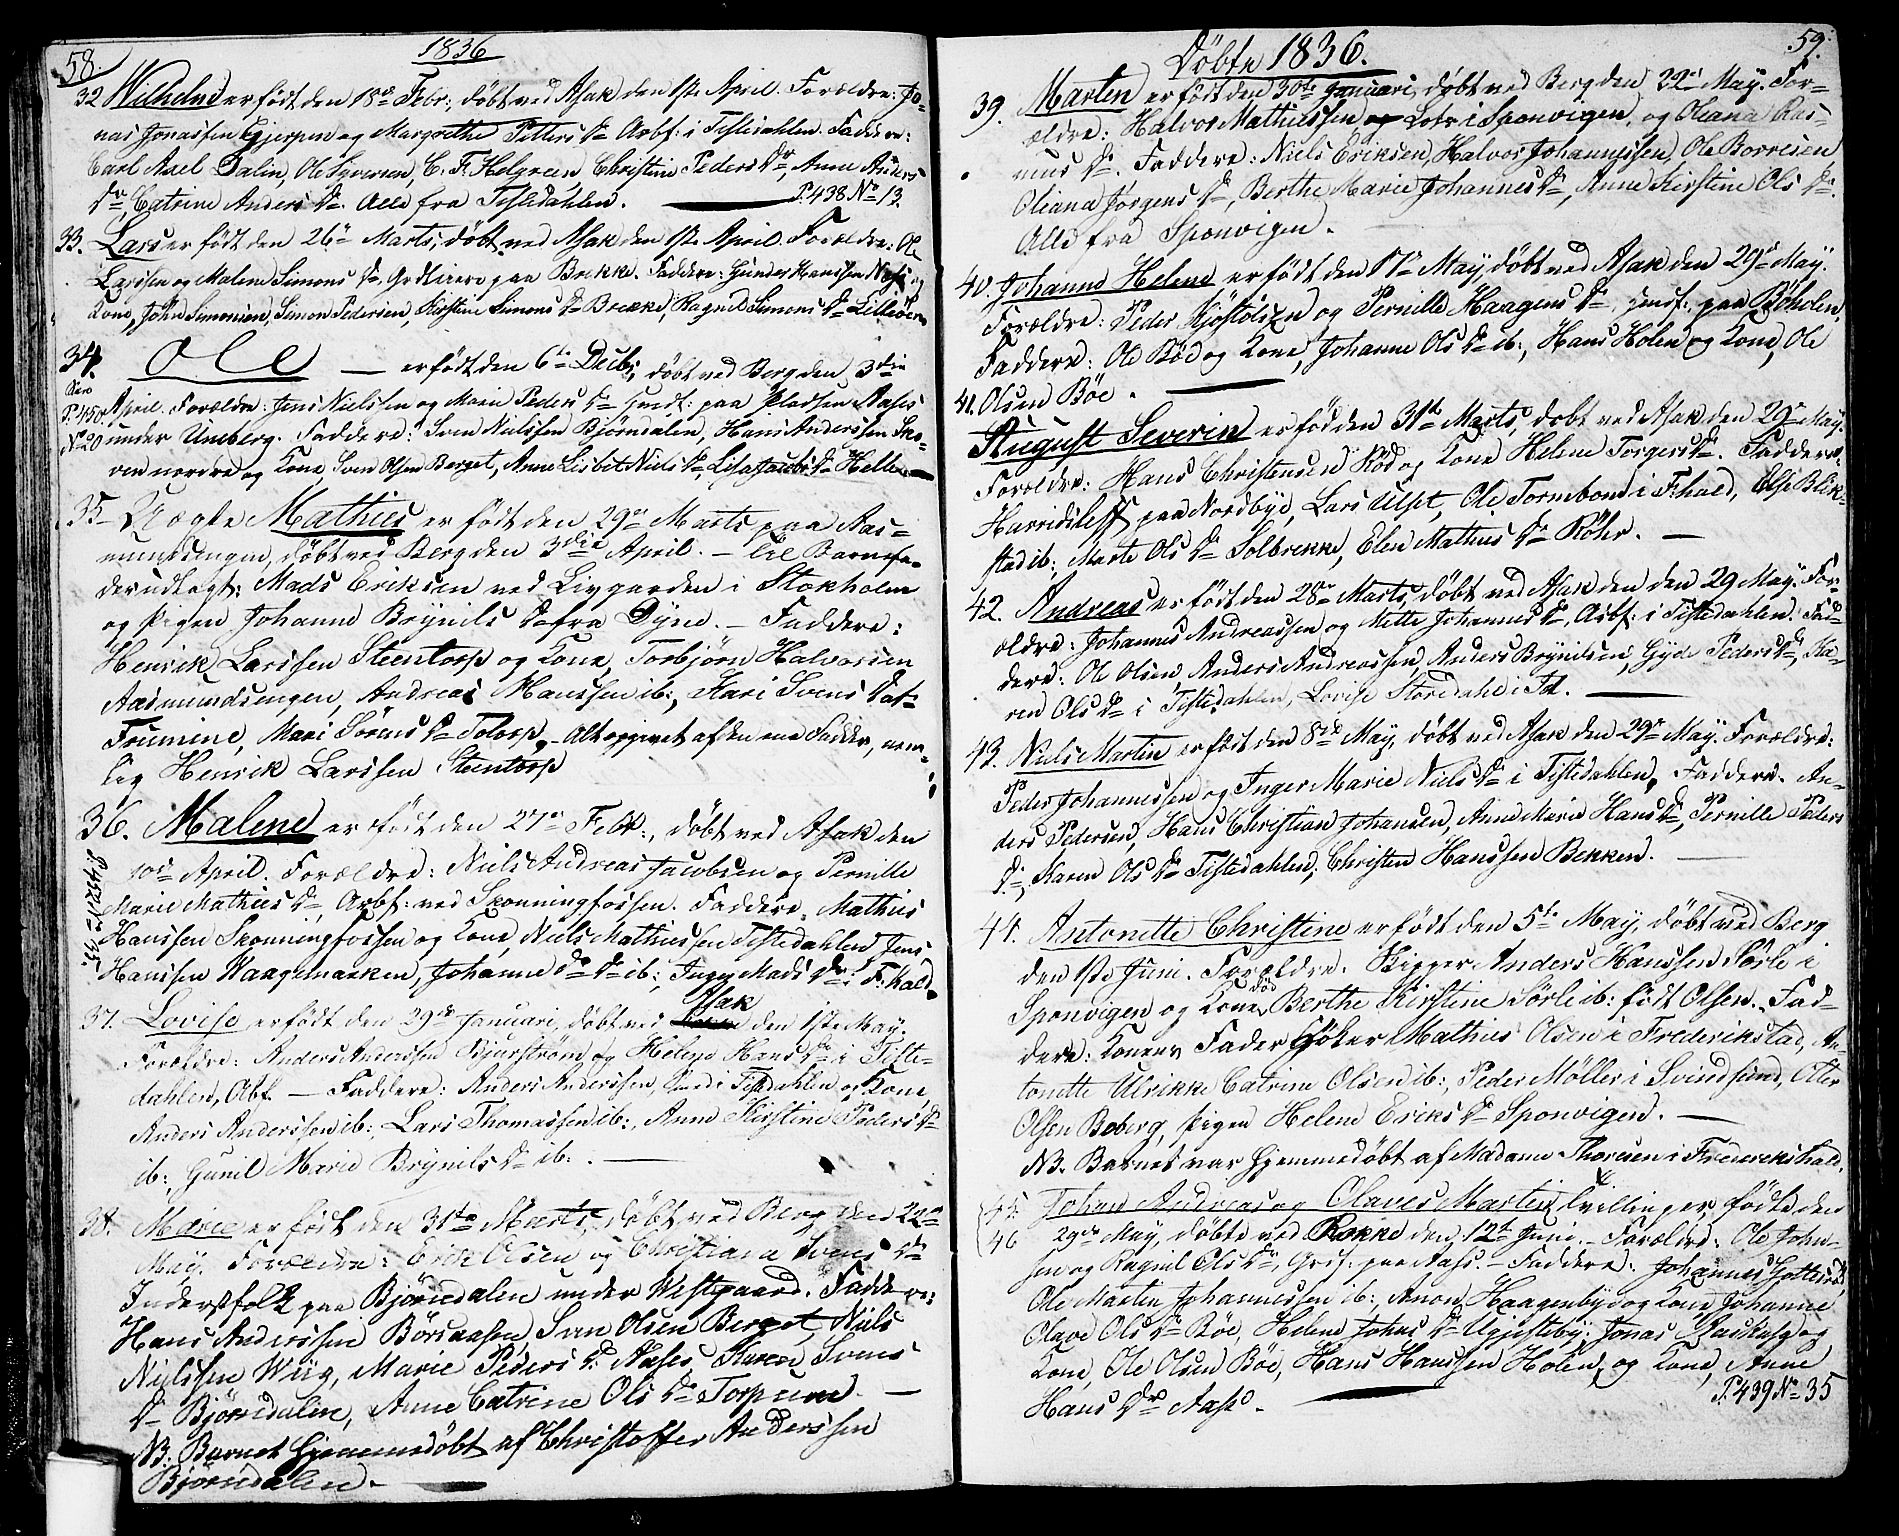 58.
1836
32 Wilhelm er født den 18de Febr: døbt ved Asak den 1ste April. Forældre: Jo-
nas Jonassen Gjerpen og Margrethe Petters Dr Arbf: i Tistedahlen. Faddere:
Carl Axel Dalin, Ole Syversen, C. F. Helgreen Christine Peders Dr, Anne Anders
Dr, Catrine Anders Dr. Alle fra Tistedahlen.
P. 438 No 13.
33. Lars er født den 26de Marts, døbt ved Asak den 1ste April. Forældre: Ole
Larssen og Malene Simons Dr. Grdbrugere paa Brekke. Faddere: Gunder Hanssen Næss og
Kone, John Simonsen, Simon Pedersen, Kirstine Simons Dr Brekke, Ragnil Simons Dr Lilleøer
34. Ole — er født den 6te Decbr, døbt ved Berg den 3die
P. 450 No 20
April. Forældre: Jens Nielssen og Marie Peders Dr Huusf: paa Pladsen Aases
under Uneberg. Faddere: Sven Nielssen Bjørndalen, Hans Anderssen Sko-
ven nordre og Kone, Sven Olsen Berget, Anne Lisbet Niels Dr, Lisa Jacobs Dr Hellen
35- Uægte Mathies er født den 29de Marts paa Aas-
mundsengen, døbt ved Berg den 3die April. — til Barnefa-
der udlagt: Mads Eriksen ved Livgarden i Stokholm
og Pigen Johanne Brynils D fra Dyne. — Faddere:
Henrik Larssen Steentorp og Kone, Torbjørn Halvorsen
Aasmundsengen, Andreas Hanssen ib:, Kari Svens Dat:
Frumine, Mari Sørens Dr Torp. - Alt opgivet af den ene Fadder, nem-
lig Henrik Larssen Steentorp
36. Malene er født den 27de Febr:, døbt ved Asak den
10de April. Forældre: Niels Andreas Jacobsen og Pernille
Marie Mathies Dr, Arbf: ved Skonningfossen. Faddere, Mathies
Hanssen Skonningfossen og Kone, Niels Mathiessen Tistedahlen, Jens
Hanssen Haagemarken, Johanne Ds Dr ib:, Inger Mads Dr i F.hald.
37. Lovise er født den 29de Januari, døbt ved Asak den 1ste May.
Forældre: Anders Anderssen Bjurstrøm og Helene Hans Dr i Tiste-
dahlen, Abf. — Faddere: Anders Anderssen, Lund i Tistedahlen og Kone,
Anders Anderssen ib:, Lars Thomassen ib:, Anne Kirstine Peders Dr
ib:, Gunil Marie Brynils Dr ib:. —
38. Marie er født den 31te Marts, døbt ved Berg den 22de
May. Forældre: Erik Olsen og Christiana Svens Dr
Inderstfolk paa Bjørndalen under Westgaard. Faddere:
Hans Anderssen Børsaasen, Sven Olsen Berget, Niels
Nielssen Wiig, Marie Peders Dr Aases, Karen Svens
Dr Bjørndalen, Anne Catrine Ols Dr Torpum. —
NB. Barnet hjemmedøbt af Christoffer Anderssen
Bjørndalen. —
Døbte 1836.
59.
39. Marten er født den 30te Januari, døbt ved Berg den 22de May. For-
ældre: Halvor Mathiessen Lots i Sponvigen, og Oleana Ras-
mus Dr. Faddere: Niels Eriksen, Halvor Johannessen, Ole Borresen
Oliana Jørgens Dr, Berthe Marie Johannes Dr, Anne Kirstine Ols Dr
Alle fra Sponvigen.
40. Johanne Helene er født den 11te May, døbt ved Asak den 29de May.
Forældre: Peder Kjøstolsen og Pernille Haagens Dr, Huusf: paa Bøholen.
Faddere: Ole Bød og Kone, Johanne Ols Dr ib:, Hans Holen og Kone, Ole
Olsen Bøe.
41. August Severin er fød den 31te Marts, døbt ved Asak den 29de May.
Forældre: Hans Christensen Rød og Kone Helene Torgers Dr. Faddere.
Harridsleff paa Nordbye, Lars Ulst, Ole Tormbond i F:hald, Else Blik-
stad ib:, Marte Ols Dr Solbrekke, Elen Mathies Dr Røhr. —
42. Andreas er født den 28de Marts, døbt ved Asak den den 29 May. For-
ældre: Johannes Andreassen og Mette Johannes Dr, Arbf: i Tistedahlen. Fad-
dere: Ole Olsen, Anders Andreassen, Anders Brynilsen, Gyde Peders Dr, Ka-
ren Ols Dr i Tistedahlen, Lovise Storedahl i Id. —
43. Niels Martin er født den 8de May, døbt ved Asak den 29de May. Forældre:
Peder Johannessen og Inger Marie Niels Dr i Tistedahlen, Faddere. An-
ders Pedersen, Hans Christian Johansen, Anne Marie Hans Dr, Pernille Peders
Dr, Karen Ols Dr Tistedahlen, Christen Hanssen Bekken. —
44. Antonette Christine er født den 5te May, døbt ved Berg
den 1ste Juni. Forældre. Skipper Anders Hanssen Sørle i
Sponvigen og Kone Berthe Kirstine Sørle ib: født Olsen. Fad-
dere: Konens Fader Høker Mathies Olsen i Frederikstad, An-
tonette Ulrikke Catrine Olsen ib:, Peder Møller i Svindsund, Oter
Olsen Boberg, Pigen Helene Eriks Dr Sponvigen. —
NB. Barnet var hjemmedøbt af Madame Thoresen i Frederikshald.
45. Johan Andreas og Olaves Martin, tvillinger, fødte den
46 29de May, døbte ved Rokke den 12te Juni. - Forældre: Ole John-
sen og Ragnil Ols Dr, paa Aass. - Faddere: Johannes
Ole Martin Johannessen ib:, Anon Haagenbye og Kone Johanne
Olave Ols Dr Bøe, Helene Johns Dr Ugjesteby, Jonas og
Kone, Ole Olsen Bøe, Hans Hanssen Holen, og Kone, Anne
Hans Dr Aass. —
P. 439 No 35